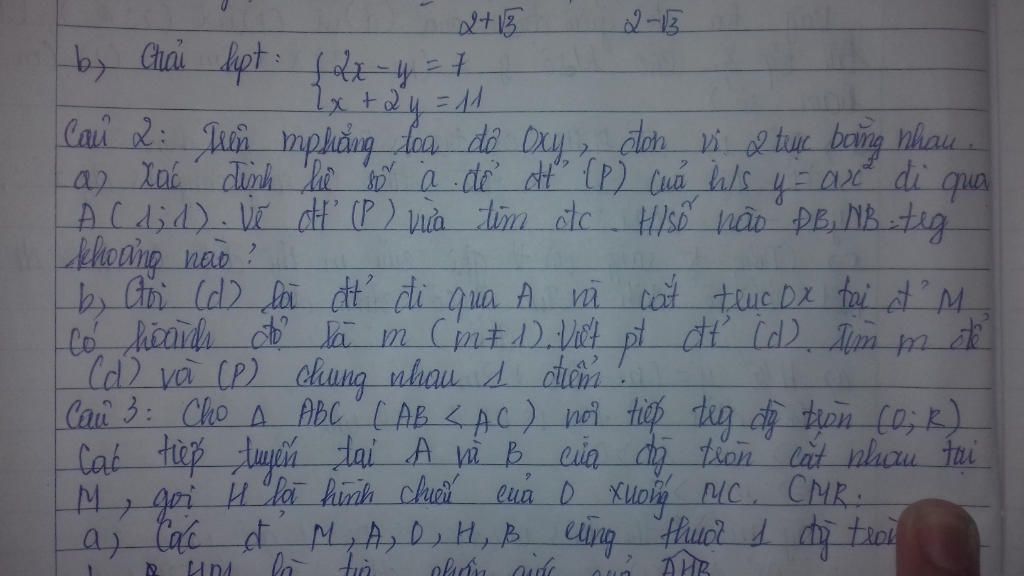 2+√3 2-√3
b, Giải hpt: {2x - y = 7
{x + 2y = 11
Câu 2: Trên mphẳng tọa độ Oxy, đơn vị 2 trục bằng nhau.
a, Xác định hệ số a để đt' (P) của h/s y = ax² đi qua
A (1;1). Vẽ đt' (P) vừa tìm đc. H/số nào ĐB, NB trg
khoảng nào?
b, Gọi (d) là đt' đi qua A và cắt trục Ox tại đ' M
có hoành độ là m (m ≠ 1). Viết pt đt' (d). Tìm m để
(d) và (P) chung nhau 1 điểm.
Câu 3: Cho Δ ABC (AB < AC) nội tiếp trg đg tròn (O; R)
Các tiếp tuyến tại A và B của đg tròn cắt nhau tại
M, gọi H là hình chiếu của O xuống MC. CMR:
a, Các đ' M, A, O, H, B cùng thuộc 1 đg tròn
HM là phân giác của AHB